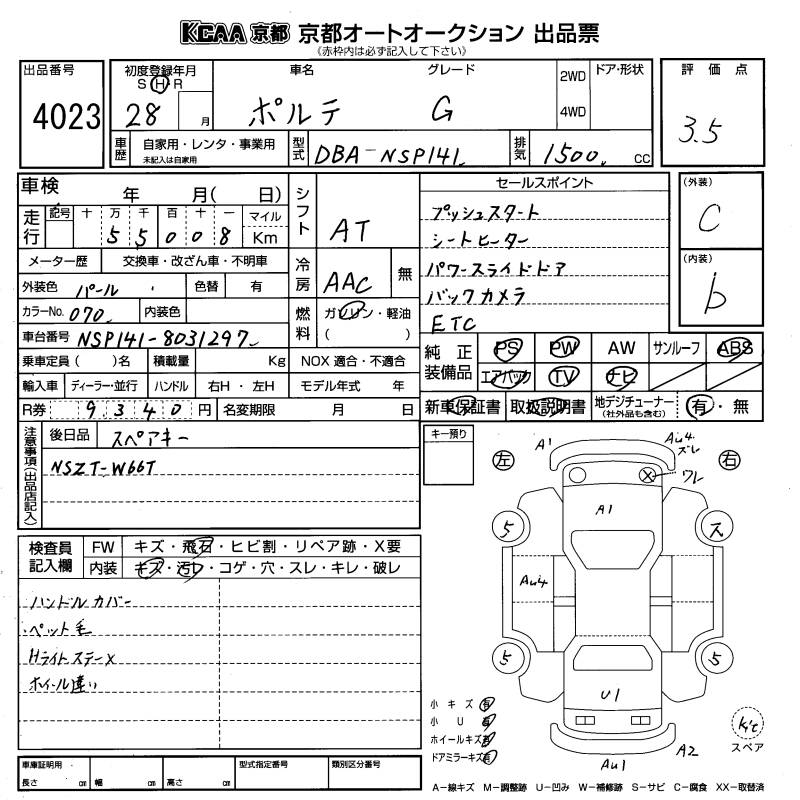 KCAA 京都 京都オートオークション 出品票
(赤枠内は必ず記入して下さい)
出品番号 4023
初度登録年月 S H R 28 月
車名 ポルテ
グレード G
2WD 4WD
ドア・形状
評価点 3.5
車歴 自家用・レンタ・事業用 未記入は自家用
型式 DBA-NSP141
排気 1500 cc
車検 年 月( 日)
走行 記号 十 万 千 百 十 一 マイル
5 5 0 0 8 Km
シフト AT
メーター歴 交換車・改ざん車・不明車
外装色 パール 色替 有
冷房 AAC 無
カラーNo. 070 内装色
燃料 ガソリン・軽油 ( )
車台番号 NSP141-8031297
乗車定員 ( )名 積載量 Kg NOX 適合・不適合
輸入車 ディーラー・並行 ハンドル 右H・左H モデル年式 年
R券 9340 円 名変期限 月 日
セールスポイント
プッシュスタート
シートヒーター
パワースライドドア
バックカメラ
ETC
(外装) C
(内装) b
純正装備品 PS PW AW サンルーフ ABS
エアバック TV ナビ
新車保証書 取扱説明書 地デジチューナー (社外品も含む) 有・無
注意事項(出品店記入)
後日品 スペアキー
NSZT-W66T
キー預り
検査員記入欄
FW キズ・飛石・ヒビ割・リペア跡・X要
内装 キズ・汚レ・コゲ・穴・スレ・キレ・破レ
ハンドルカバー
ペット毛
Hライトステーメ
ホイール違い
左 右
A1
Au4 ズレ
ワレ
A1
5 ス
Au4
5 5
U1
Au1
A2
小キズ 有
小U 有
ホイールキズ 有
ドアミラーキズ 有
kit
スペア
車庫証明用 長さ cm 幅 cm 高さ cm
型式指定番号
類別区分番号
A-線キズ M-調整跡 U-凹み W-補修跡 S-サビ C-腐食 XX-取替済